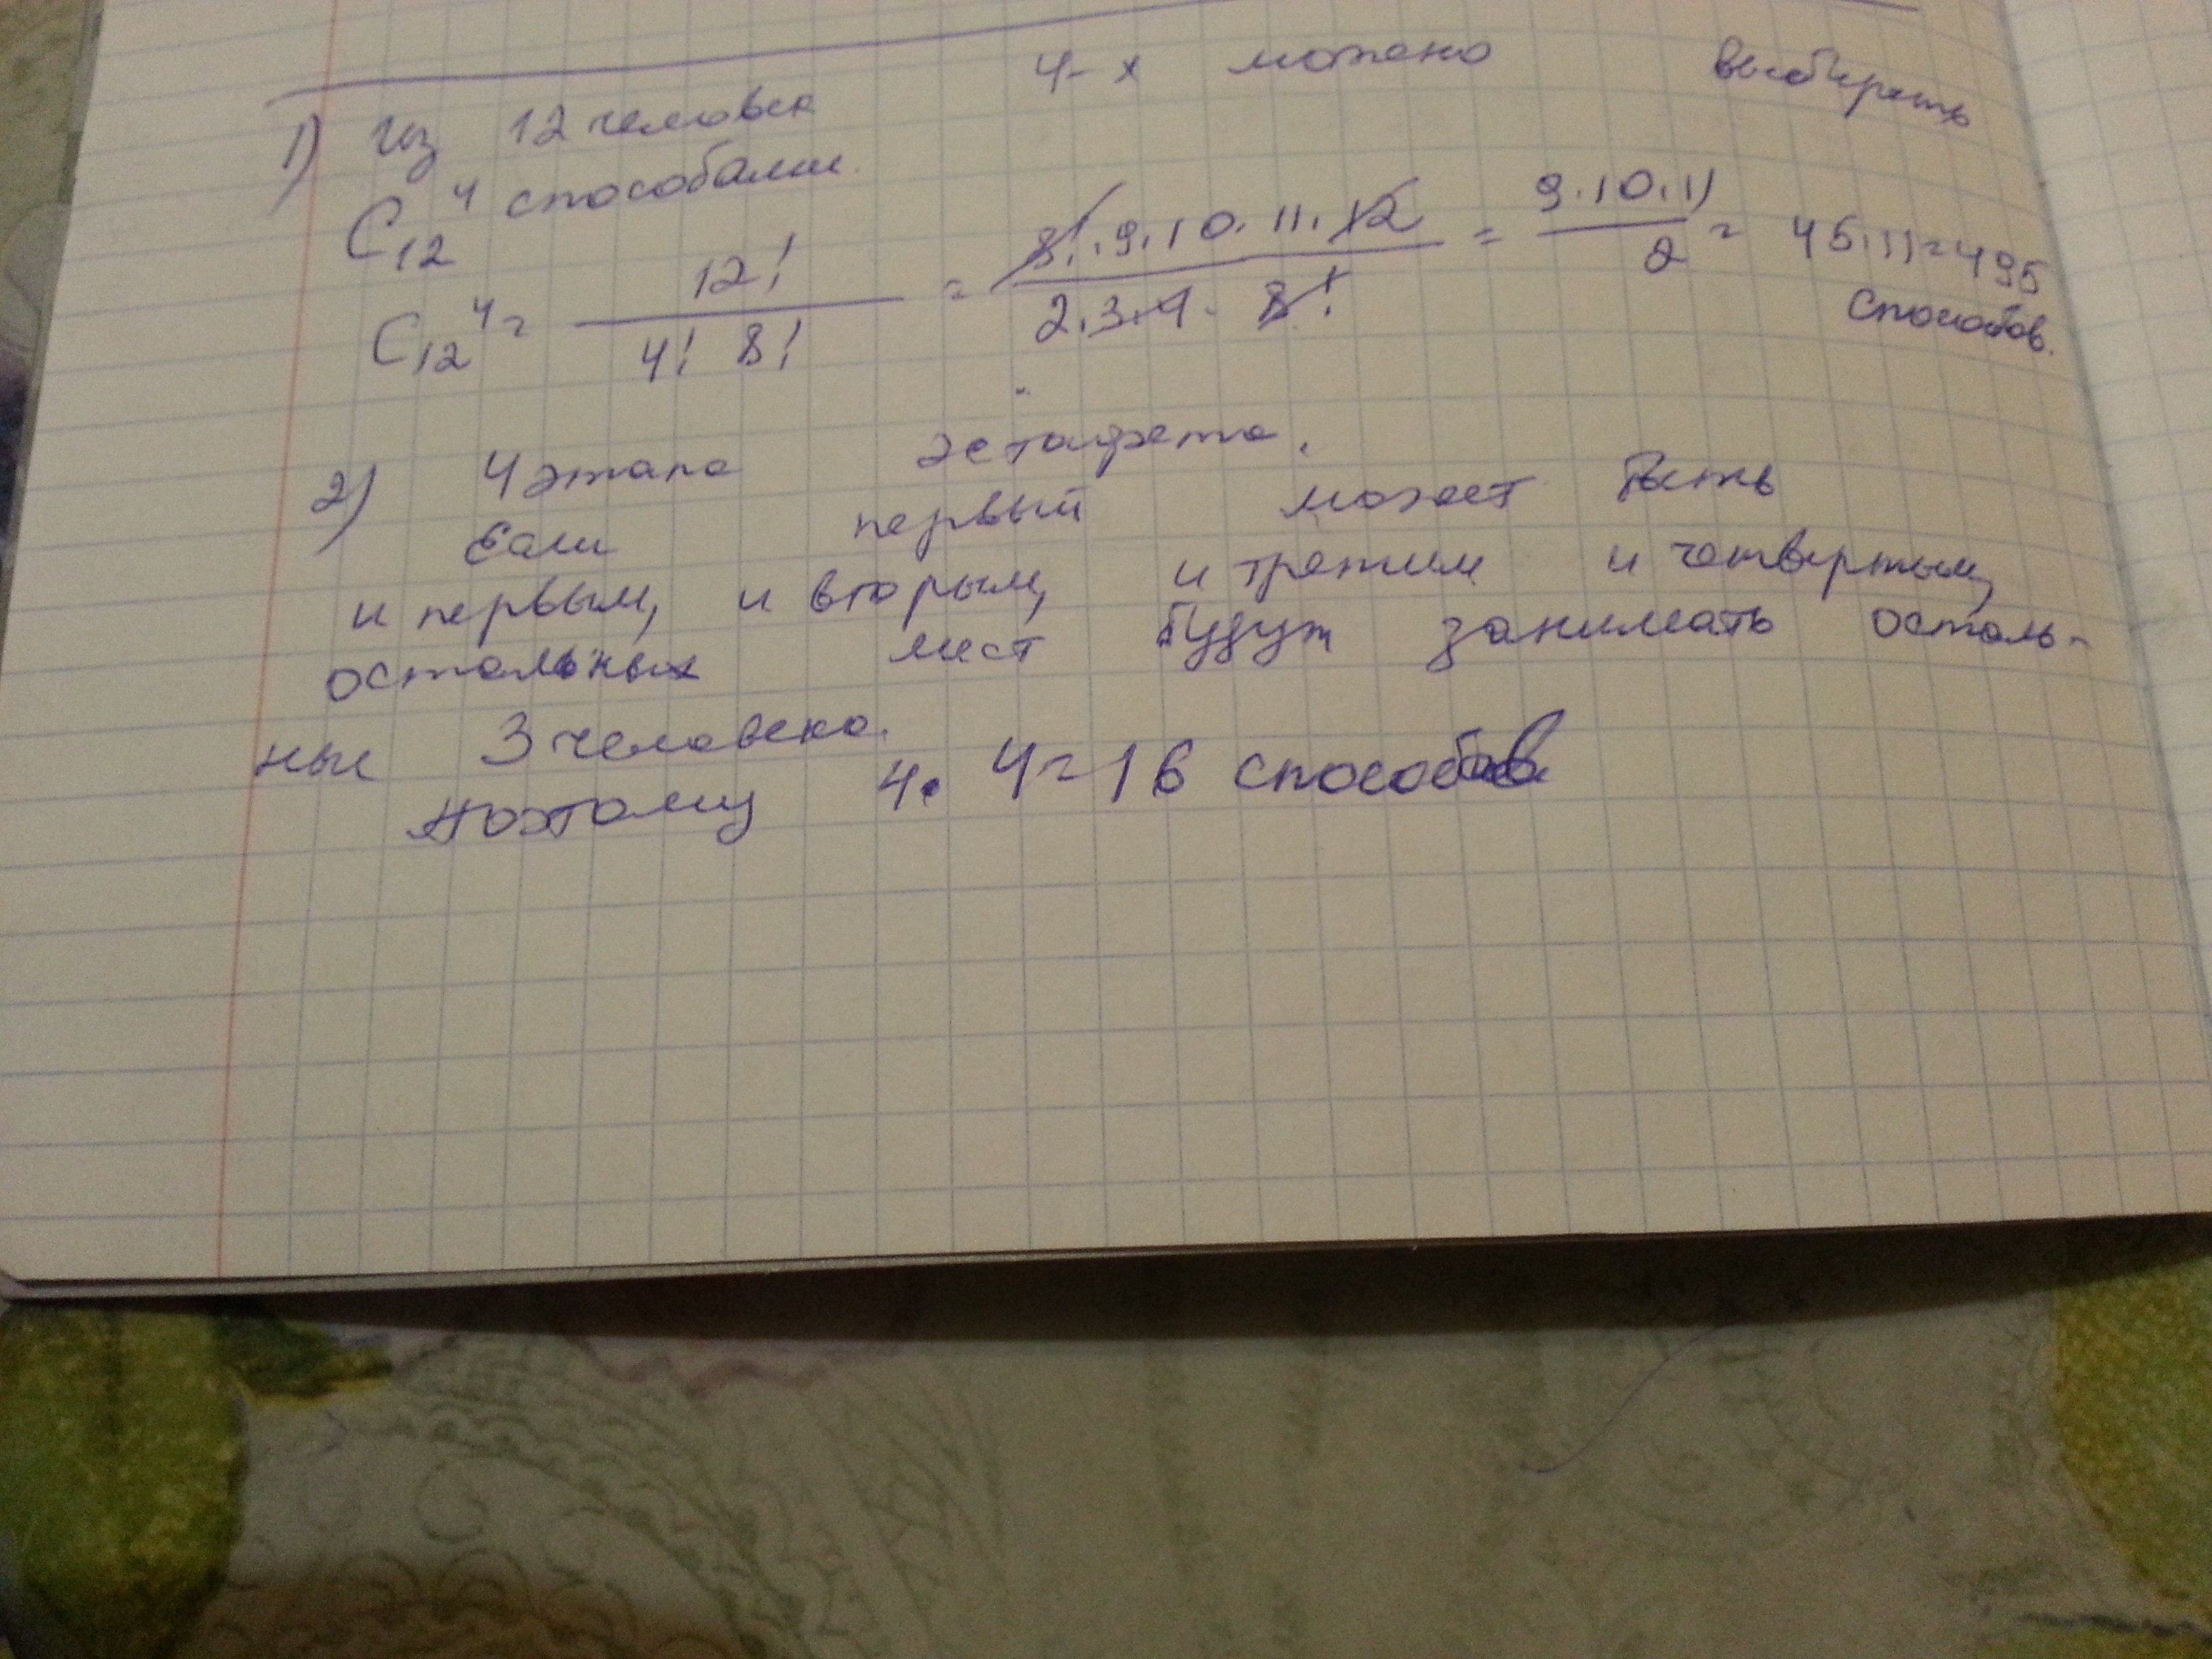 1) Из 12 человек 4-х можно выбирать
C₁₂⁴ способами.
C₁₂⁴ = 12! / 4! 8! = 8!·9·10·11·12 / 2·3·4·8! = 9·10·11 / 2 = 45·11=495
способов.
2) 4 этапа эстафета.
Если первый может быть
и первым, и вторым, и третим и четвертым,
остальных мест будут занимать осталь-
ные 3 человека.
Поэтому 4·4=16 способов